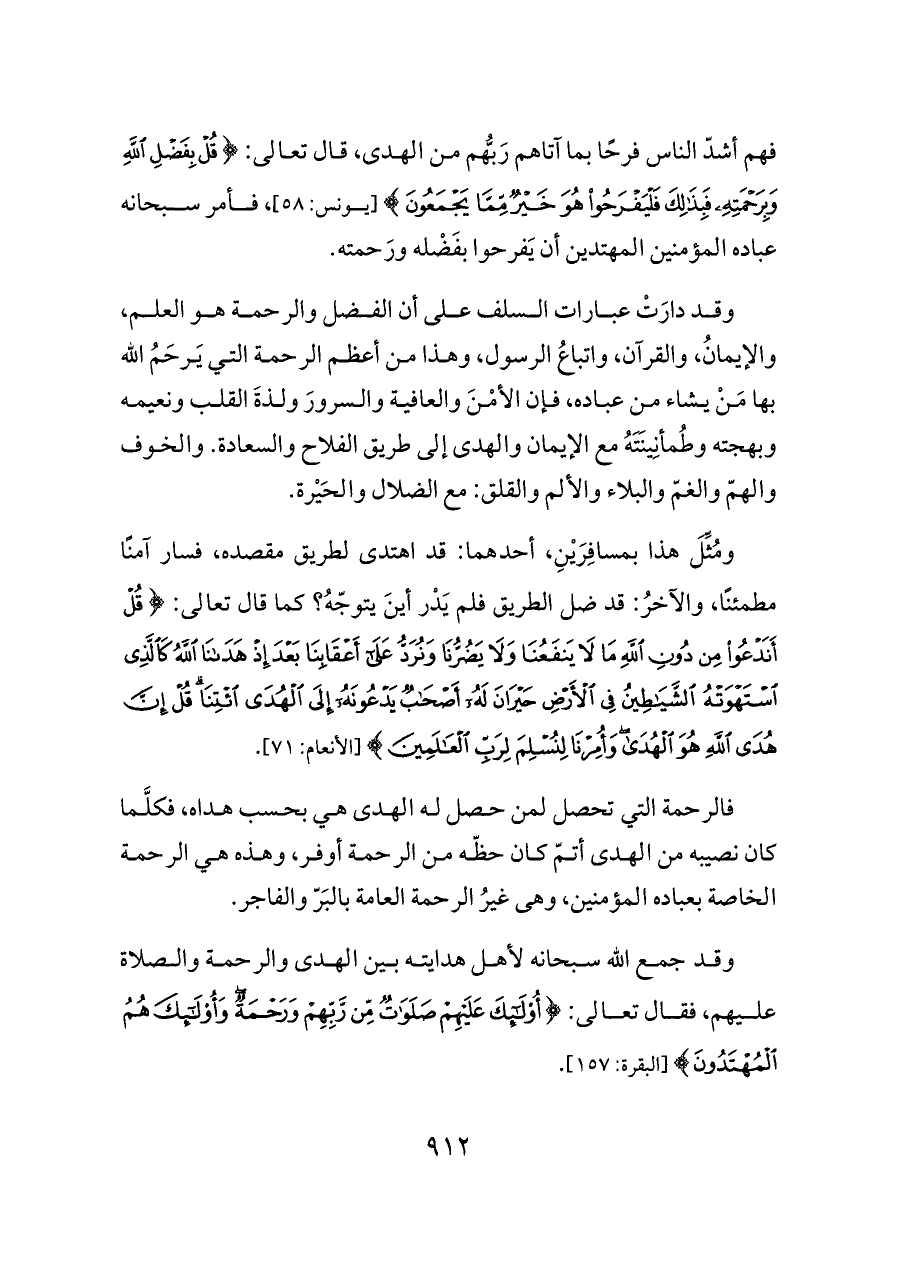 فهم أشدّ الناس فرحًا بما آتاهم رَبُّهم من الهدى، قال تعالى: ﴿ قُلْ بِفَضْلِ ٱللَّهِ
وَبِرَحْمَتِهِۦ فَبِذَٰلِكَ فَلْيَفْرَحُوا۟ هُوَ خَيْرٌ مِّمَّا يَجْمَعُونَ ﴾ [يونس: ٥٨]، فأمر سبحانه
عباده المؤمنين المهتدين أن يَفرحوا بفَضْله ورَحمته.
وقد دارَتْ عبارات السلف على أن الفضل والرحمة هو العلم،
والإيمانُ، والقرآن، واتباعُ الرسول، وهذا من أعظم الرحمة التي يَرحَمُ الله
بها مَنْ يشاء من عباده، فإن الأمْنَ والعافية والسرورَ ولذةَ القلب ونعيمه
وبهجته وطُمأنِينَتَهُ مع الإيمان والهدى إلى طريق الفلاح والسعادة. والخوف
والهمّ والغمّ والبلاء والألم والقلق: مع الضلال والحَيْرة.
ومُثِّلَ هذا بمسافِرَيْنِ، أحدهما: قد اهتدى لطريق مقصده، فسار آمنًا
مطمئنًا، والآخرُ: قد ضل الطريق فلم يَدْر أينَ يتوجّهُ؟ كما قال تعالى: ﴿ قُلْ
أَنَدْعُوا۟ مِن دُونِ ٱللَّهِ مَا لَا يَنفَعُنَا وَلَا يَضُرُّنَا وَنُرَدُّ عَلَىٰٓ أَعْقَابِنَا بَعْدَ إِذْ هَدَىٰنَا ٱللَّهُ كَٱلَّذِى
ٱسْتَهْوَتْهُ ٱلشَّيَٰطِينُ فِى ٱلْأَرْضِ حَيْرَانَ لَهُۥٓ أَصْحَٰبٌ يَدْعُونَهُۥٓ إِلَى ٱلْهُدَى ٱئْتِنَا ۗ قُلْ إِنَّ
هُدَى ٱللَّهِ هُوَ ٱلْهُدَىٰ ۖ وَأُمِرْنَا لِنُسْلِمَ لِرَبِّ ٱلْعَٰلَمِينَ ﴾ [الأنعام: ٧١].
فالرحمة التي تحصل لمن حصل له الهدى هي بحسب هداه، فكلَّما
كان نصيبه من الهدى أتمّ كان حظّه من الرحمة أوفر، وهذه هي الرحمة
الخاصة بعباده المؤمنين، وهى غيرُ الرحمة العامة بالبَرّ والفاجر.
وقد جمع الله سبحانه لأهل هدايته بين الهدى والرحمة والصلاة
عليهم، فقال تعالى: ﴿ أُو۟لَٰٓئِكَ عَلَيْهِمْ صَلَوَٰتٌ مِّن رَّبِّهِمْ وَرَحْمَةٌ ۖ وَأُو۟لَٰٓئِكَ هُمُ
ٱلْمُهْتَدُونَ ﴾ [البقرة: ١٥٧].
٩١٢